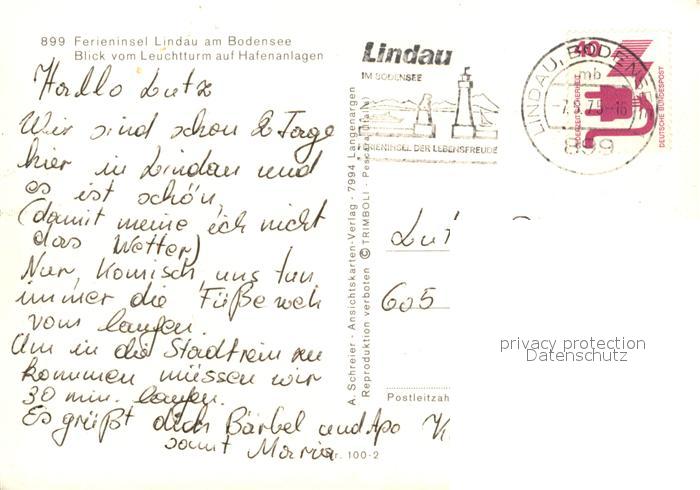 899 Ferieninsel Lindau am Bodensee
Blick vom Leuchtturm auf Hafenanlagen
Hallo Lutz
Wir sind schon 2 Tage
hier in Lindau und
es ist schön,
(damit meine ich nicht
das Wetter)
Nur, komisch, uns tun
immer die Füße weh
vom laufen.
Um in die Stadt rein zu
kommen müssen wir
30 min. laufen.
Es grüßt dich Bärbel und Apo
samt Maria
A. Schreier · Ansichtskarten-Verlag · 7994 Langenargen
Reproduktion verboten © TRIMBOLI - Pescara (Italia)
r. 100-2
Lindau
IM BODENSEE
FERIENINSEL DER LEBENSFREUDE
LINDAU, BODENSEE
mb
899
40
JEDERZEIT SICHERHEIT
DEUTSCHE BUNDESPOST
605
privacy protection
Datenschutz
Postleitzah